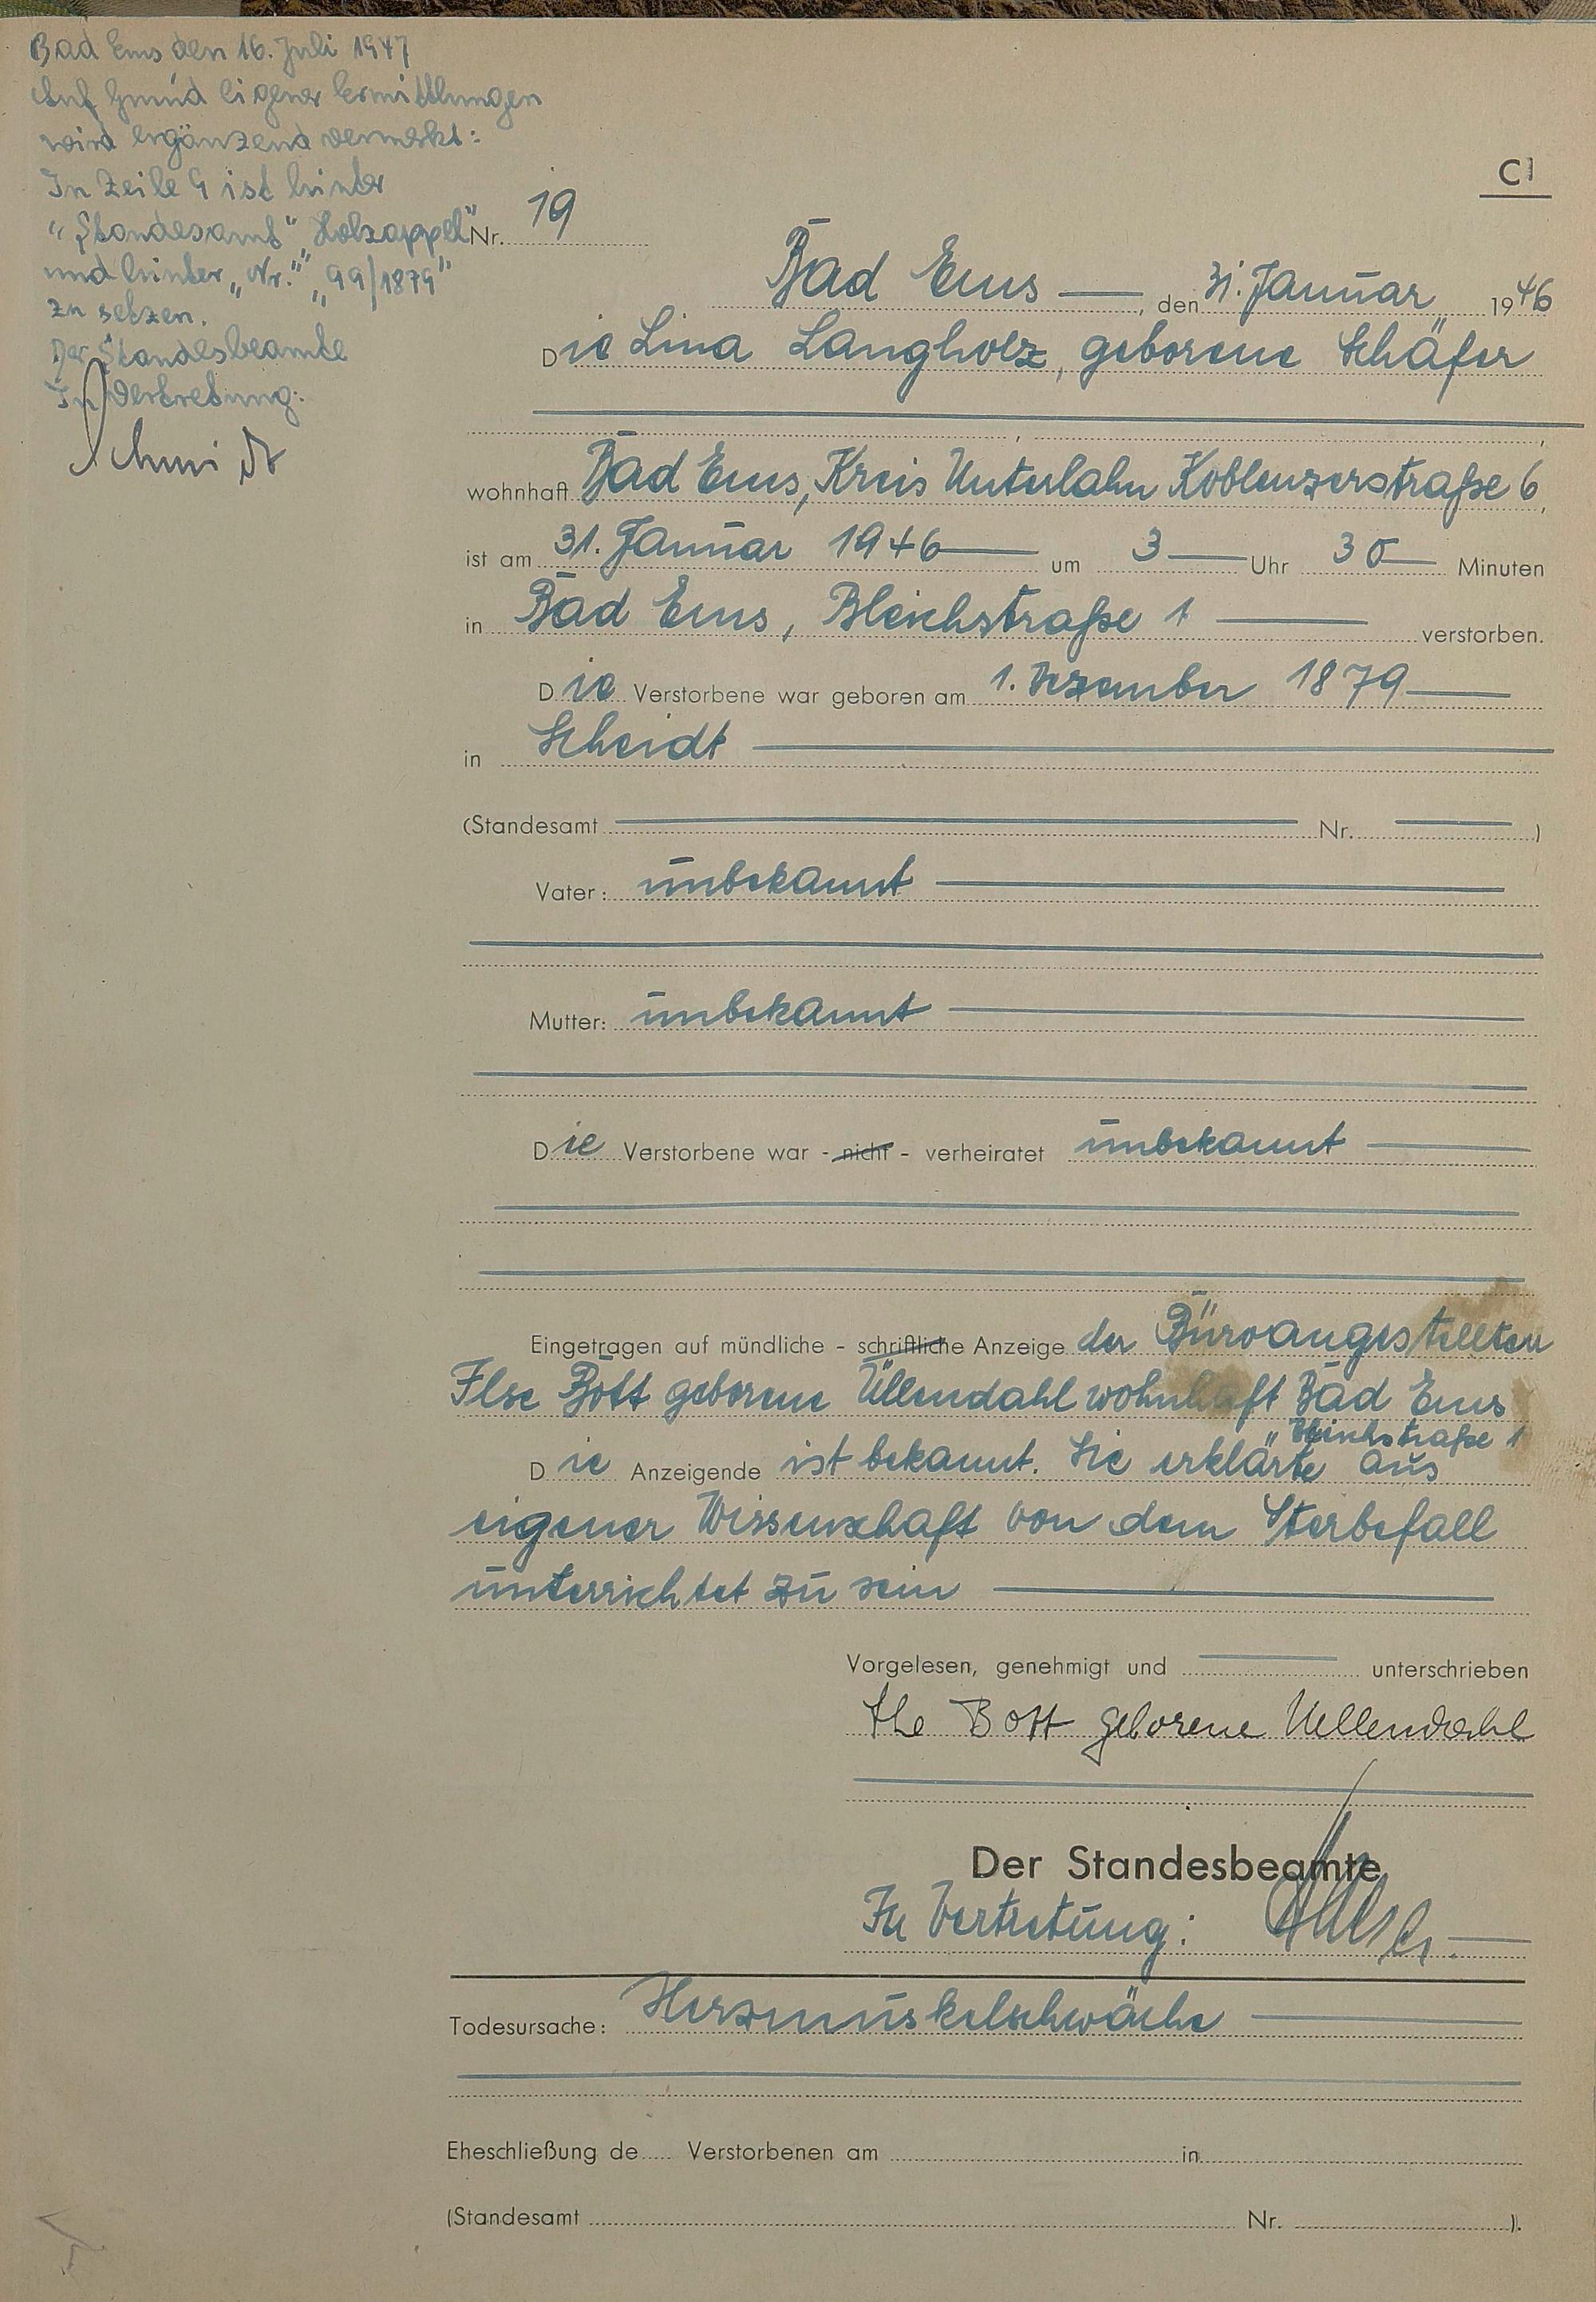 Bad Ems den 16. Juli 1947
Auf Grund eigener Ermittlungen
wird ergänzend vermerkt:
In Zeile 9 ist hinter
"Standesamt" „Holzappel"
und hinter „Nr." „99/1879"
zu setzen.
Der Standesbeamte
In Vertretung:
Schmidt
C1
Nr. 19
Bad Ems, den 31. Januar 1946
Die Lina Langholz, geborene Schäfer
wohnhaft Bad Ems, Kreis Unterlahn Koblenzerstraße 6,
ist am 31. Januar 1946 um 3 Uhr 30 Minuten
in Bad Ems, Bleichstraße 1 verstorben.
Die Verstorbene war geboren am 1. Dezember 1879
in Scheidt
(Standesamt Nr. )
Vater: unbekannt
Mutter: unbekannt
Die Verstorbene war - nicht - verheiratet unbekannt
Eingetragen auf mündliche - schriftliche Anzeige der Büroangestellten
Ilse Bott geborene Üllendahl wohnhaft Bad Ems
Bleichstraße 1
Die Anzeigende ist bekannt. Sie erklärte aus
eigener Wissenschaft von dem Sterbefall
unterrichtet zu sein
Vorgelesen, genehmigt und unterschrieben
Ilse Bott geborene Uellendahl
Der Standesbeamte
In Vertretung:
Todesursache: Herzmuskelschwäche
Eheschließung de Verstorbenen am in
(Standesamt Nr. ).